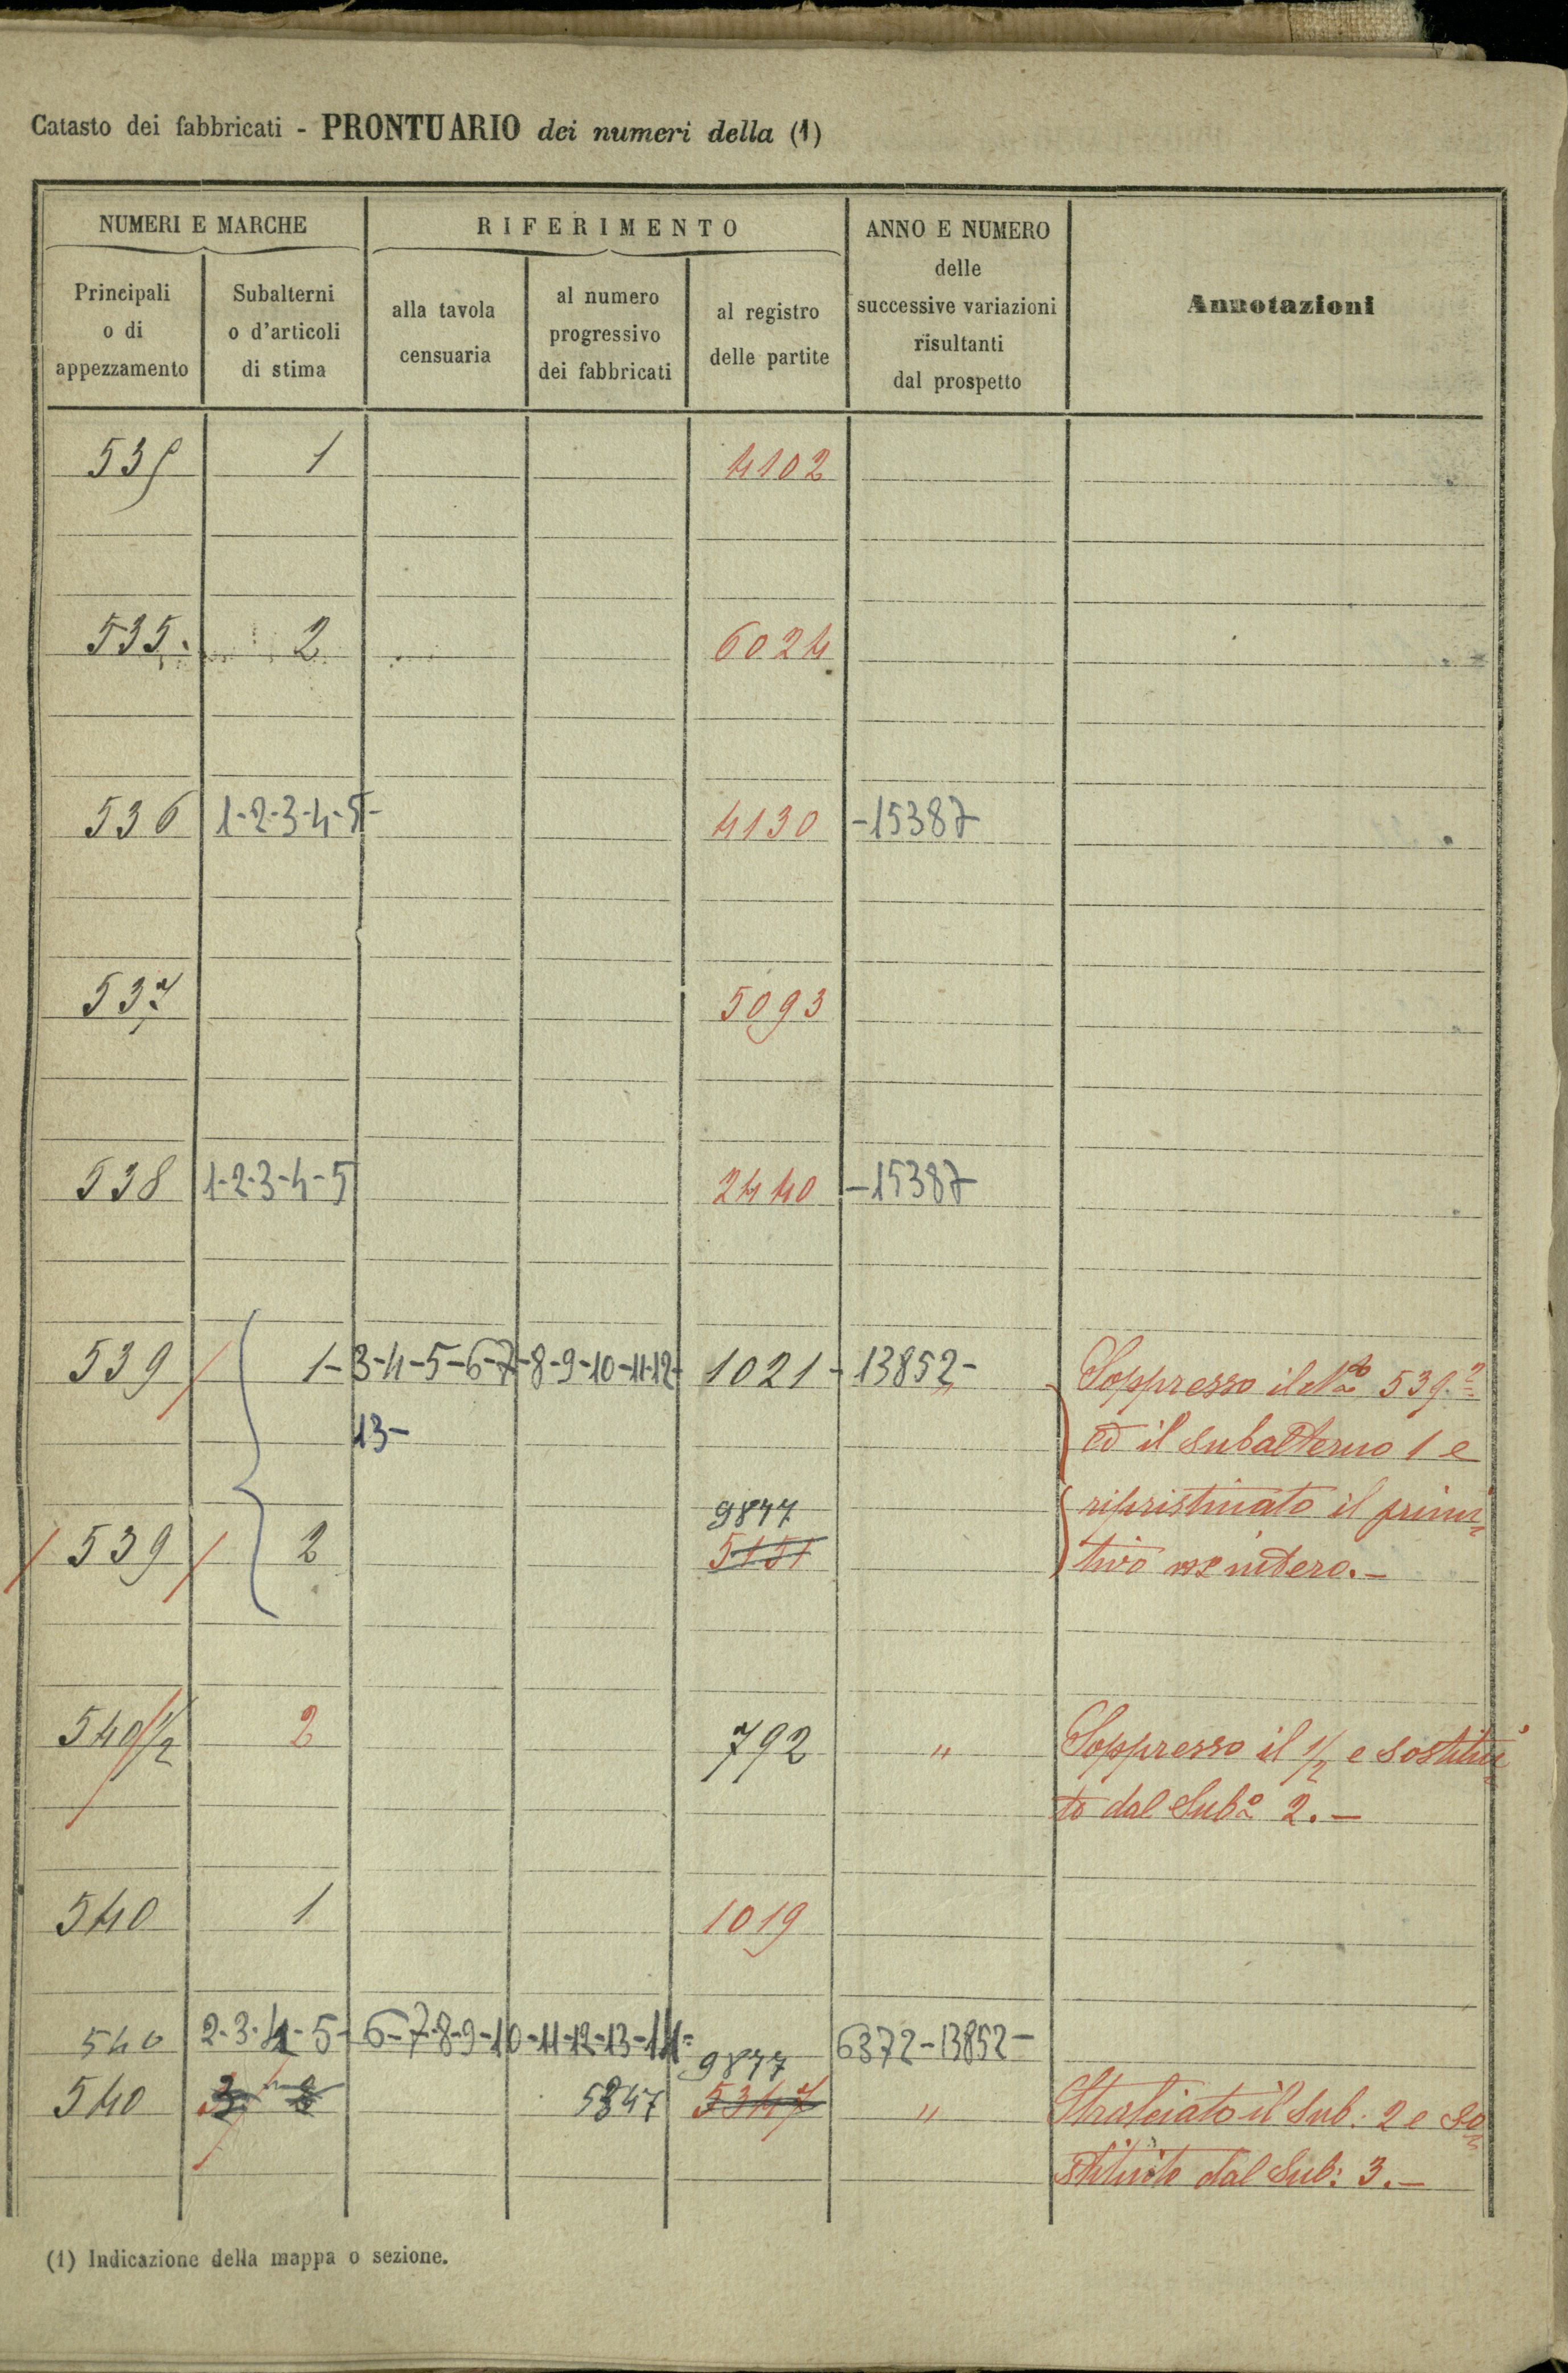 Catasto dei fabbricati - PRONTUARIO dei numeri della (1)
NUMERI E MARCHE
RIFERIMENTO
ANNO E NUMERO
delle
successive variazioni
risultanti
dal prospetto
Annotazioni
Principali
o di
appezzamento
Subalterni
o d'articoli
di stima
alla tavola
censuaria
al numero
progressivo
dei fabbricati
al registro
delle partite
535 1 4102
535. 2 6024
536 1-2-3-4-5- 4130 -15387
537 5093
538 1-2-3-4-5 2440 -15387
539 1-3-4-5-6-7-8-9-10-11-12- 1021- 13852- " Soppresso il No 539
13- ed il subalterno 1 e
9877 ripristinato il primi
539 2 5151 tivo
540 1/2 2 792 " Soppresso il 1/2 e sostitui
to dal Subo 2.-
540 1 1019
540 2-3-4-5-6-7-8-9-10-11-12-13-14- 6372-13852-
9877
540 3 2 5847 5347 " Stralciato il Sub: 2 e so
stituito dal Sub: 3.-
(1) Indicazione della mappa o sezione.